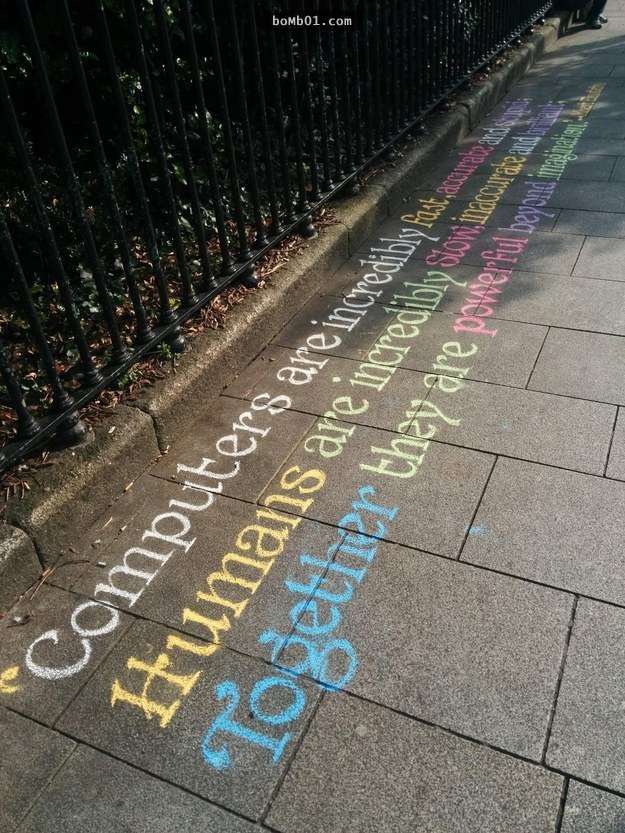 boMb01.com
"Computers are incredibly fast, accurate and
Humans are incredibly slow, inaccurate and brilliant.
Together they are powerful beyond imagination.